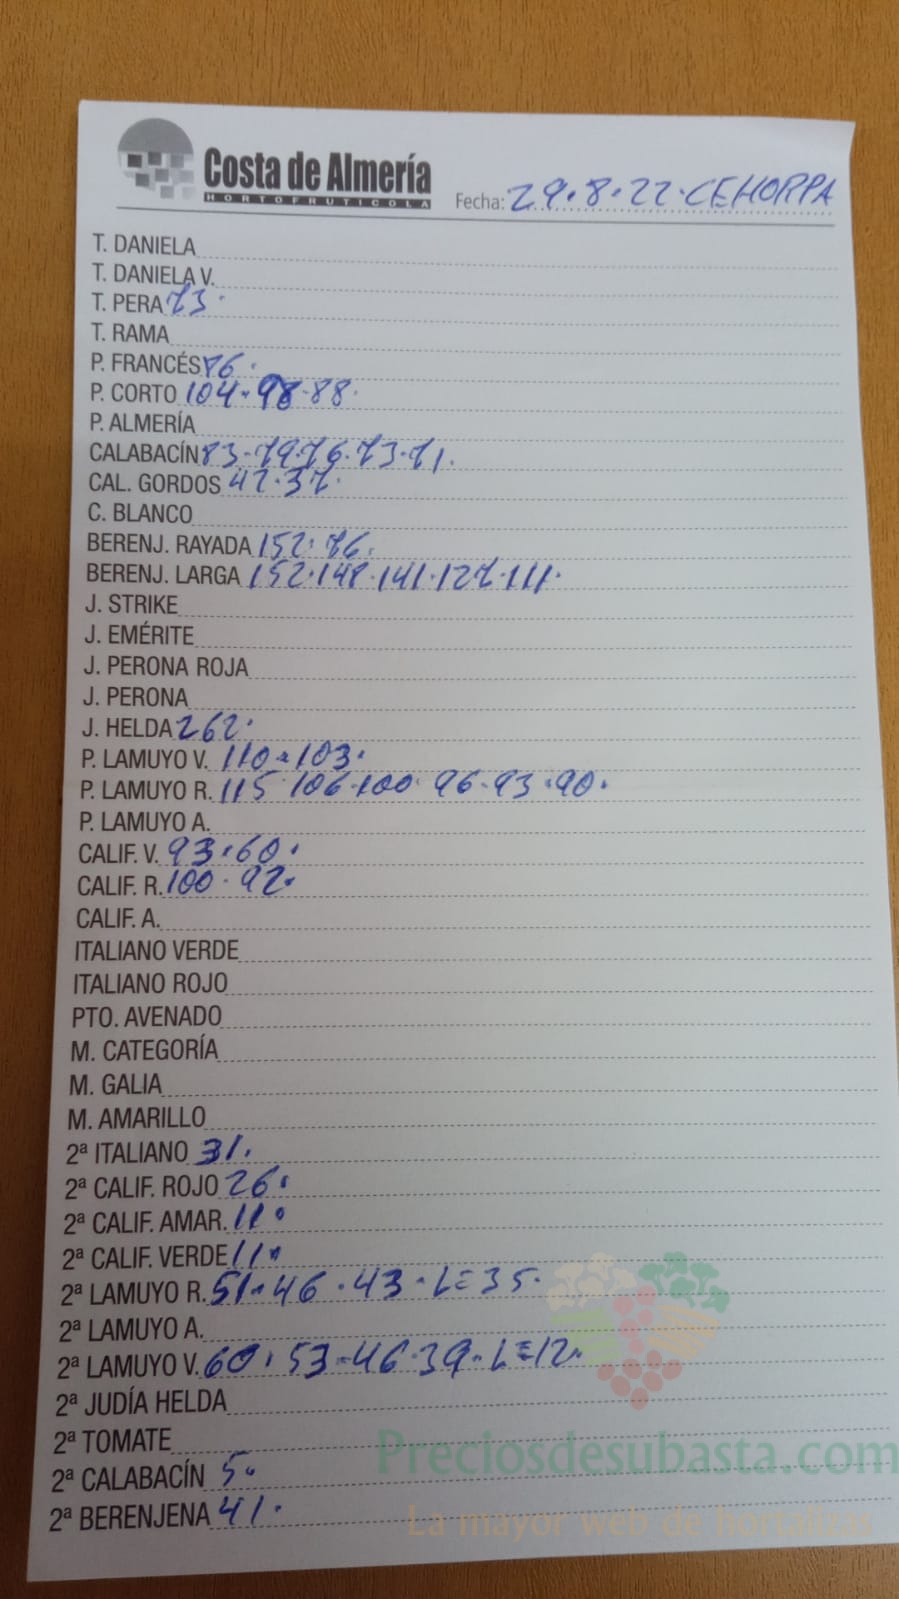 Costa de Almería
HORTOFRUTICOLA
Fecha: 29.8.22. CEHORPA
T. DANIELA
T. DANIELA V.
T. PERA 73.
T. RAMA
P. FRANCÉS 86.
P. CORTO 104.98.88.
P. ALMERÍA
CALABACÍN 83.79.76.73.71.
CAL. GORDOS 47.37.
C. BLANCO
BERENJ. RAYADA 152.86.
BERENJ. LARGA 152.148.141.127.111.
J. STRIKE
J. EMÉRITE
J. PERONA ROJA
J. PERONA
J. HELDA 262.
P. LAMUYO V. 110.103.
P. LAMUYO R. 115 106.100.96.93.90.
P. LAMUYO A.
CALIF. V. 93.60.
CALIF. R. 100.92.
CALIF. A.
ITALIANO VERDE
ITALIANO ROJO
PTO. AVENADO
M. CATEGORÍA
M. GALIA
M. AMARILLO
2ª ITALIANO 31.
2ª CALIF. ROJO 26.
2ª CALIF. AMAR. 11.
2ª CALIF. VERDE 11.
2ª LAMUYO R. 51.46.43.L=35.
2ª LAMUYO A.
2ª LAMUYO V. 60.53.46.39.L=12.
2ª JUDÍA HELDA
2ª TOMATE
2ª CALABACÍN 5.
2ª BERENJENA 41.
Preciosdesubasta.com
La mayor web de hortalizas